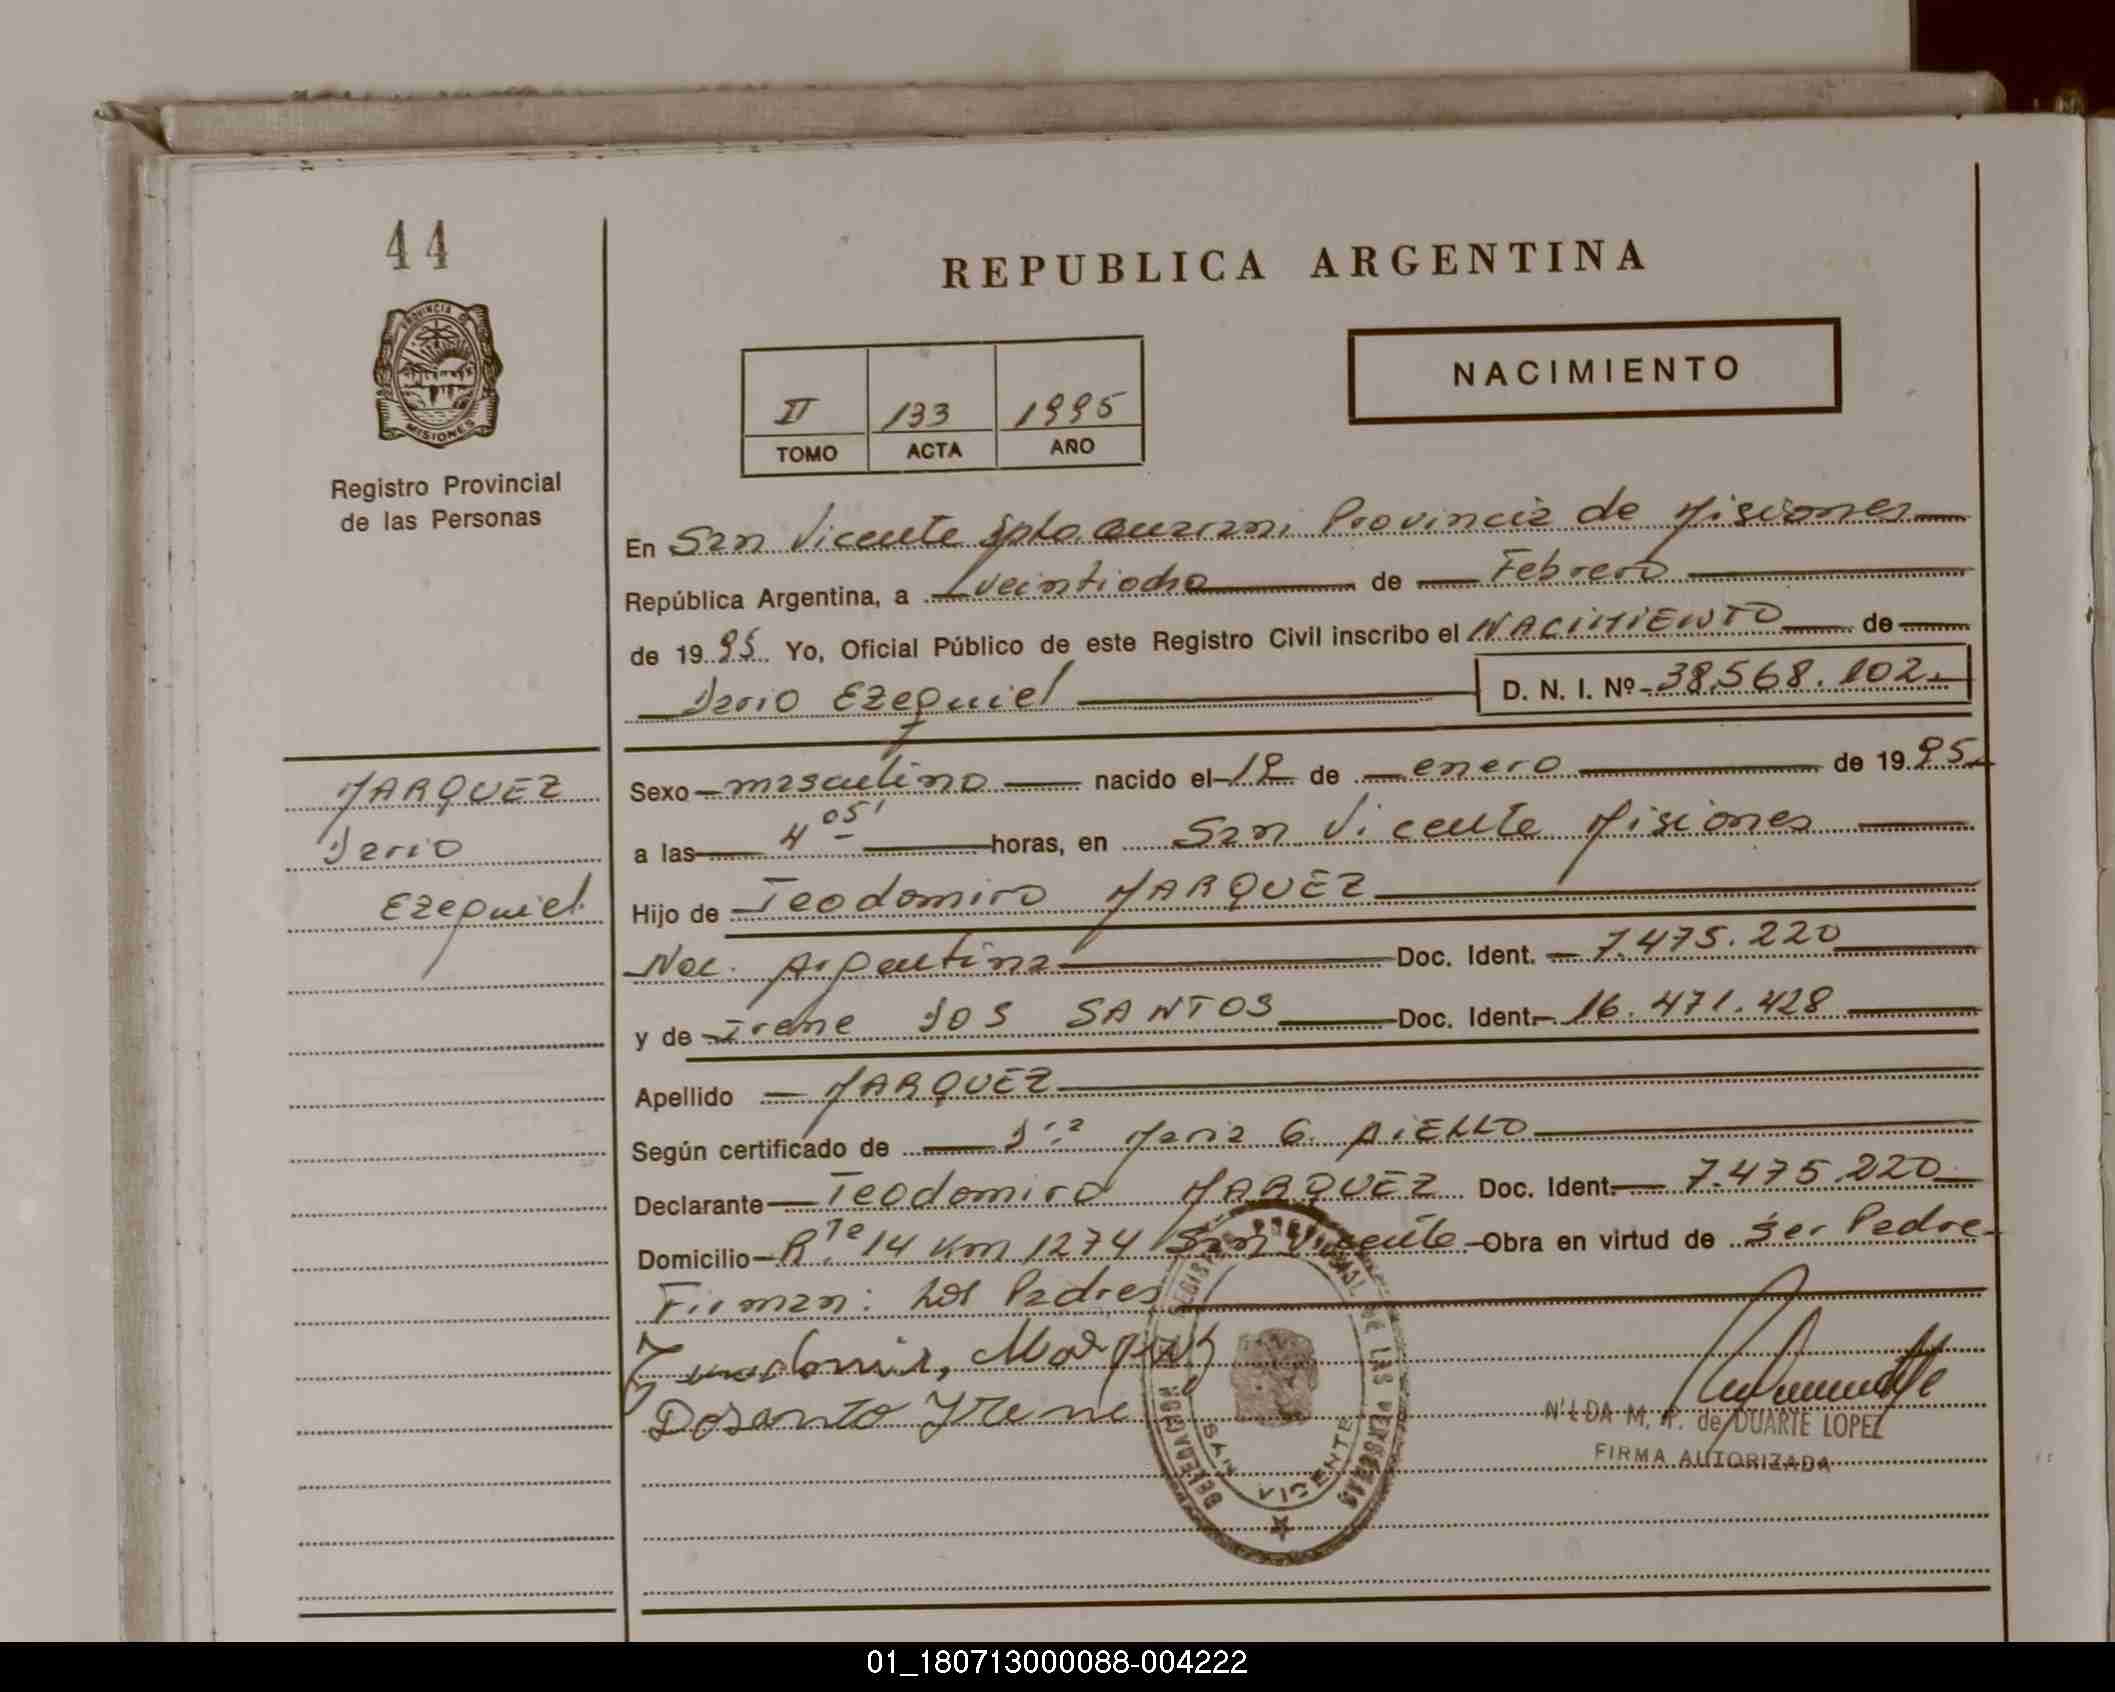 44
REPUBLICA ARGENTINA
PROVINCIA DE MISIONES
Registro Provincial
de las Personas
NACIMIENTO
II 133 1995
TOMO ACTA AÑO
En San Vicente Dpto. Guarani Provincia de Misiones
República Argentina, a veintiocho de Febrero
de 19 95 Yo, Oficial Público de este Registro Civil inscribo el NACIMIENTO de
Dario Ezequiel D. N. I. Nº 38.568.102.
MARQUEZ
Dario
Ezequiel
Sexo masculino nacido el 12 de enero de 19 95
a las 4 05' horas, en San Vicente Misiones
Hijo de Teodomiro MARQUEZ
Nac. Argentina Doc. Ident. 7.475.220
y de Irene DOS SANTOS Doc. Ident. 16.471.428
Apellido MARQUEZ
Según certificado de Dra Maria G. AIELLO
Declarante Teodomiro MARQUEZ Doc. Ident. 7.475.220
Domicilio Rta 14 Km 1274 San Vicente Obra en virtud de ser Padre
Firman: Los Padres
Marquez
Dosanto Yrene
DELEGACION REGISTRO PROVINCIAL DE LAS PERSONAS
SAN VICENTE
NILDA M. P. de DUARTE LOPEZ
FIRMA AUTORIZADA
01_180713000088-004222